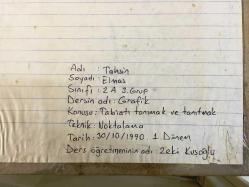 Adı : Tahsin
Soyadı : Elmas
Sınıfı : 2 A 3. Grup
Dersin adı : Grafik
Konusu : Tabiatı tanımak ve tanıtmak
Teknik : Noktalama
Tarih : 30/10/1990 1. Dönem
Ders öğretmeninin adı : Zeki Kuşoğlu